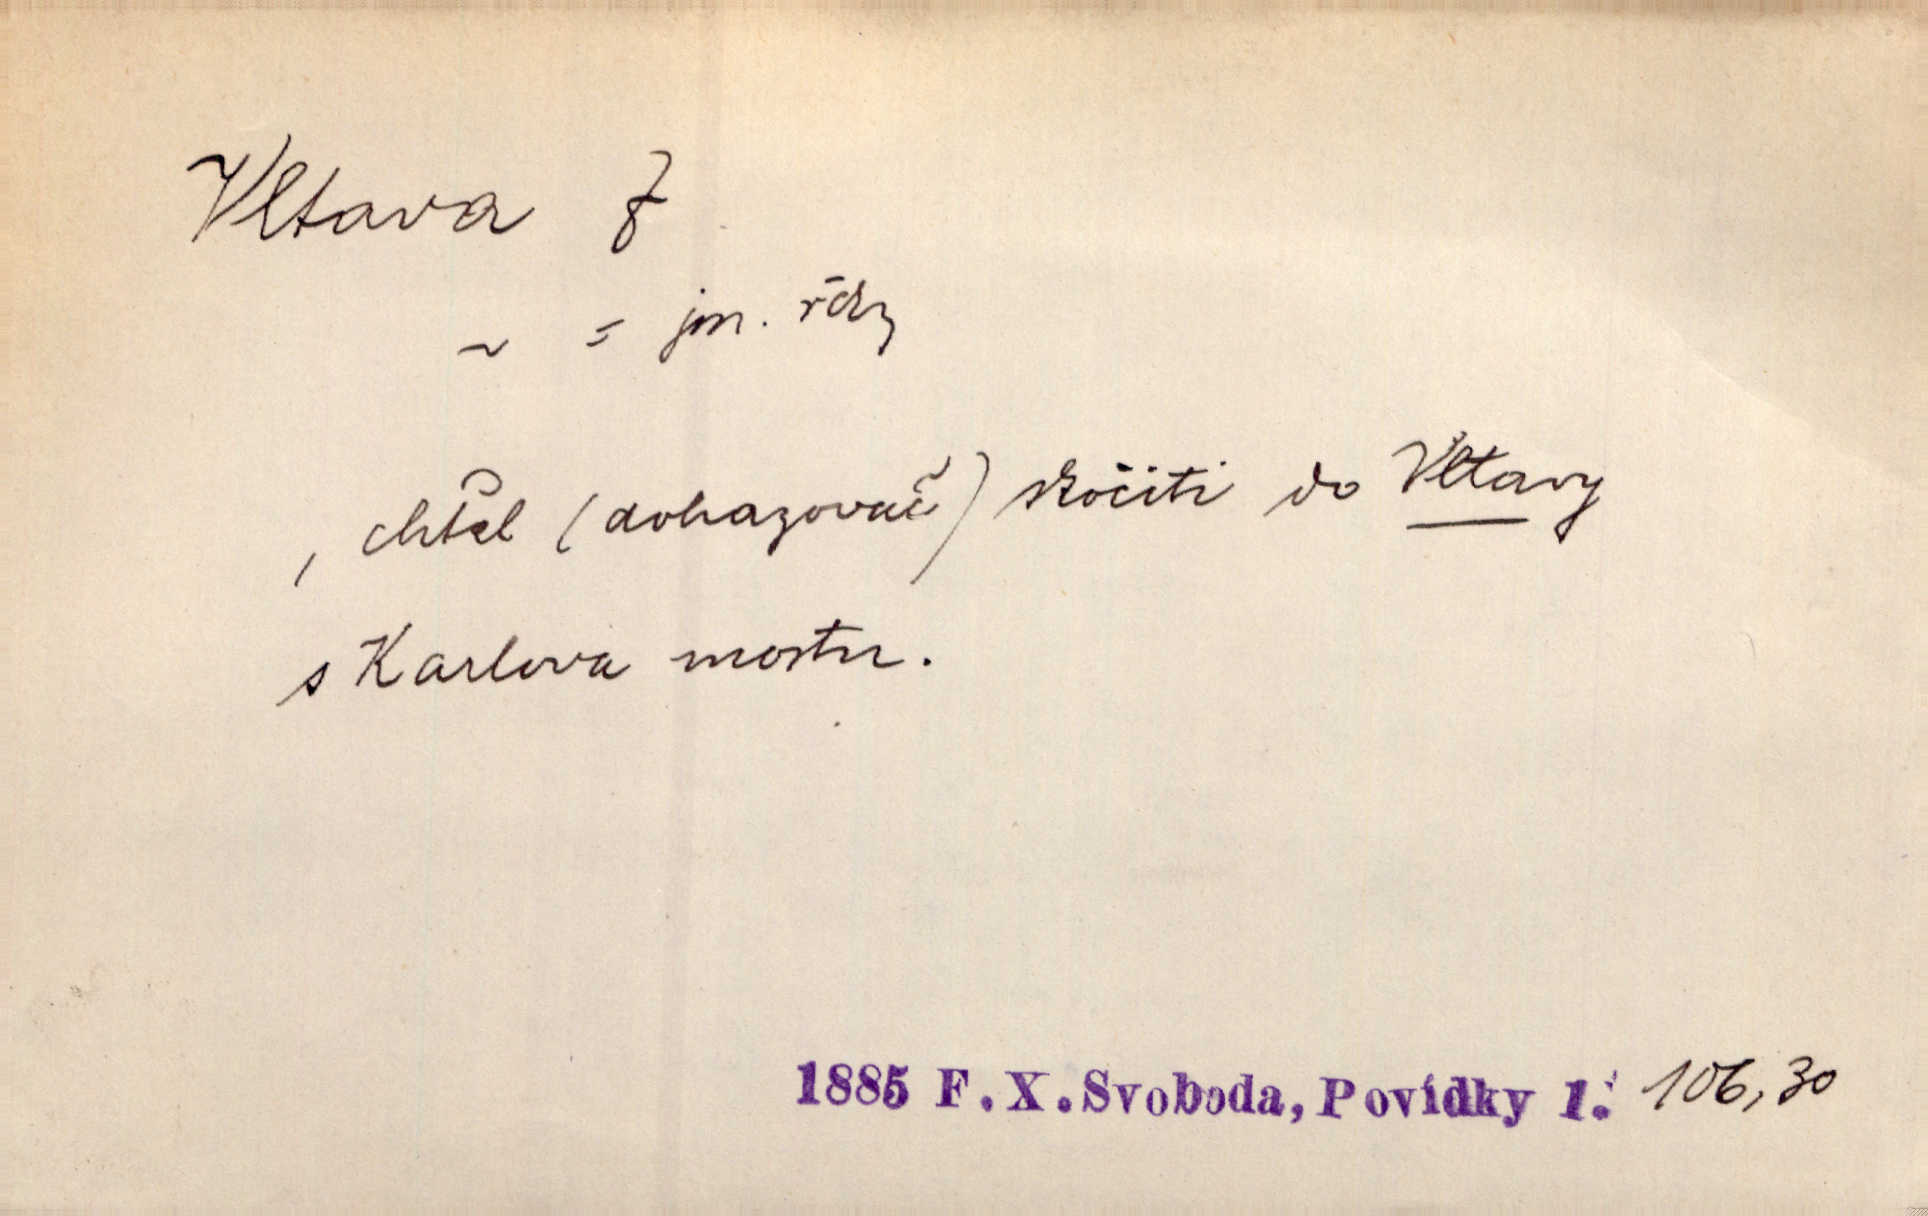 Vltava f
~ = jm. řeky
, chtěl (dohazovač) skočiti do Vltavy
s Karlova mostu.
1885 F.X.Svoboda, Povídky 1. 106,30